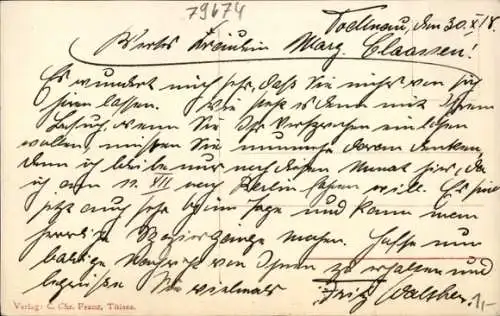 79674
Todtnau, den 30. X. 18.
Wertes Fräulein Marg. Claassen!
Es wundert mich sehr, daß Sie nichts von sich
hören lassen. Wie steht es denn mit Ihrem
Besuch, wenn Sie Ihr Versprechen einlösen
wollen, müssen Sie nunmehr daran denken,
denn ich bleibe nur noch diesen Monat hier, da
ich am 11. XII nach Berlin fahren will. Es sind
jetzt auch sehr schöne Tage und kann man
herrliche Spaziergänge machen. Hoffe nun
baldige Nachricht von Ihnen zu erhalten und
begrüße Sie vielmals Fritz Walther.
1,-
Verlag: C. Chr. Franz, Titisee.